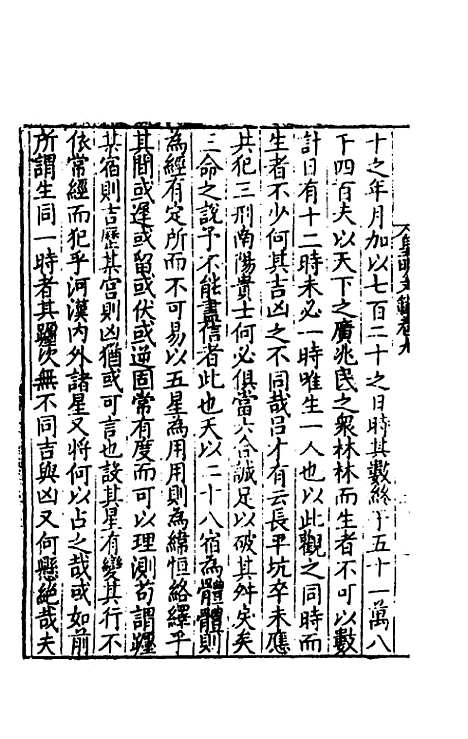 十之年月加以七百二十之日時其數終于五十一萬八
千四百夫以天下之廣兆民之衆林林而生者不可以數
計日有十二時未必一時唯生一人也以此觀之同時而
生者不少何其吉凶之不同哉吕才有云長平坑卒未應
共犯三刑南陽貴士何必俱當六合誠足以破其舛戾矣
三命之說予不能盡信者此也天以二十八宿為體體則
為經有定所而不可易以五星為用用則為緯恒絡繹乎
其間或遲或留或伏或逆固常有度而可以理測苟謂躔
某宿則吉歷某宮則凶猶或可言也設其星有變其行不
依常經而犯乎河漢內外諸星又將何以占之哉或如前
所謂生同一時者其躔次無不同吉與凶又何懸絶哉夫